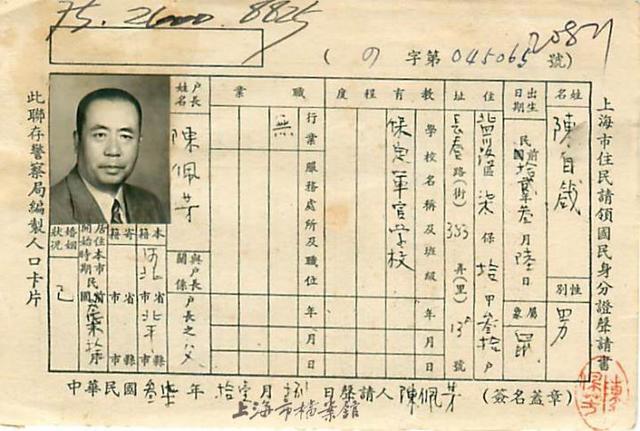 75.2600.8825
(の字第045065號)
2087
上海市住民請領國民身分證聲請書
姓名 陳自哉
性別 男
出生日期 民前拾貳年叁月陸日
屬象 鼠
住址
區柒保拾甲叁拾戶
長春路(街)353弄(里)13號
教育程度
學校名稱及班級
年月
保定軍官學校
職業
行業
服務處所及職位
年月日
無
戶長姓名 陳佩芳
與戶長關係 戶長之父
本籍 河北省北平市縣
寄籍 省市市縣
居住本市開始時期 民國
婚姻狀況 已
此聯存警察局編製人口卡片
中華民國叁柒年拾壹月 日聲請人陳佩芳(簽名蓋章)
上海市檔案館